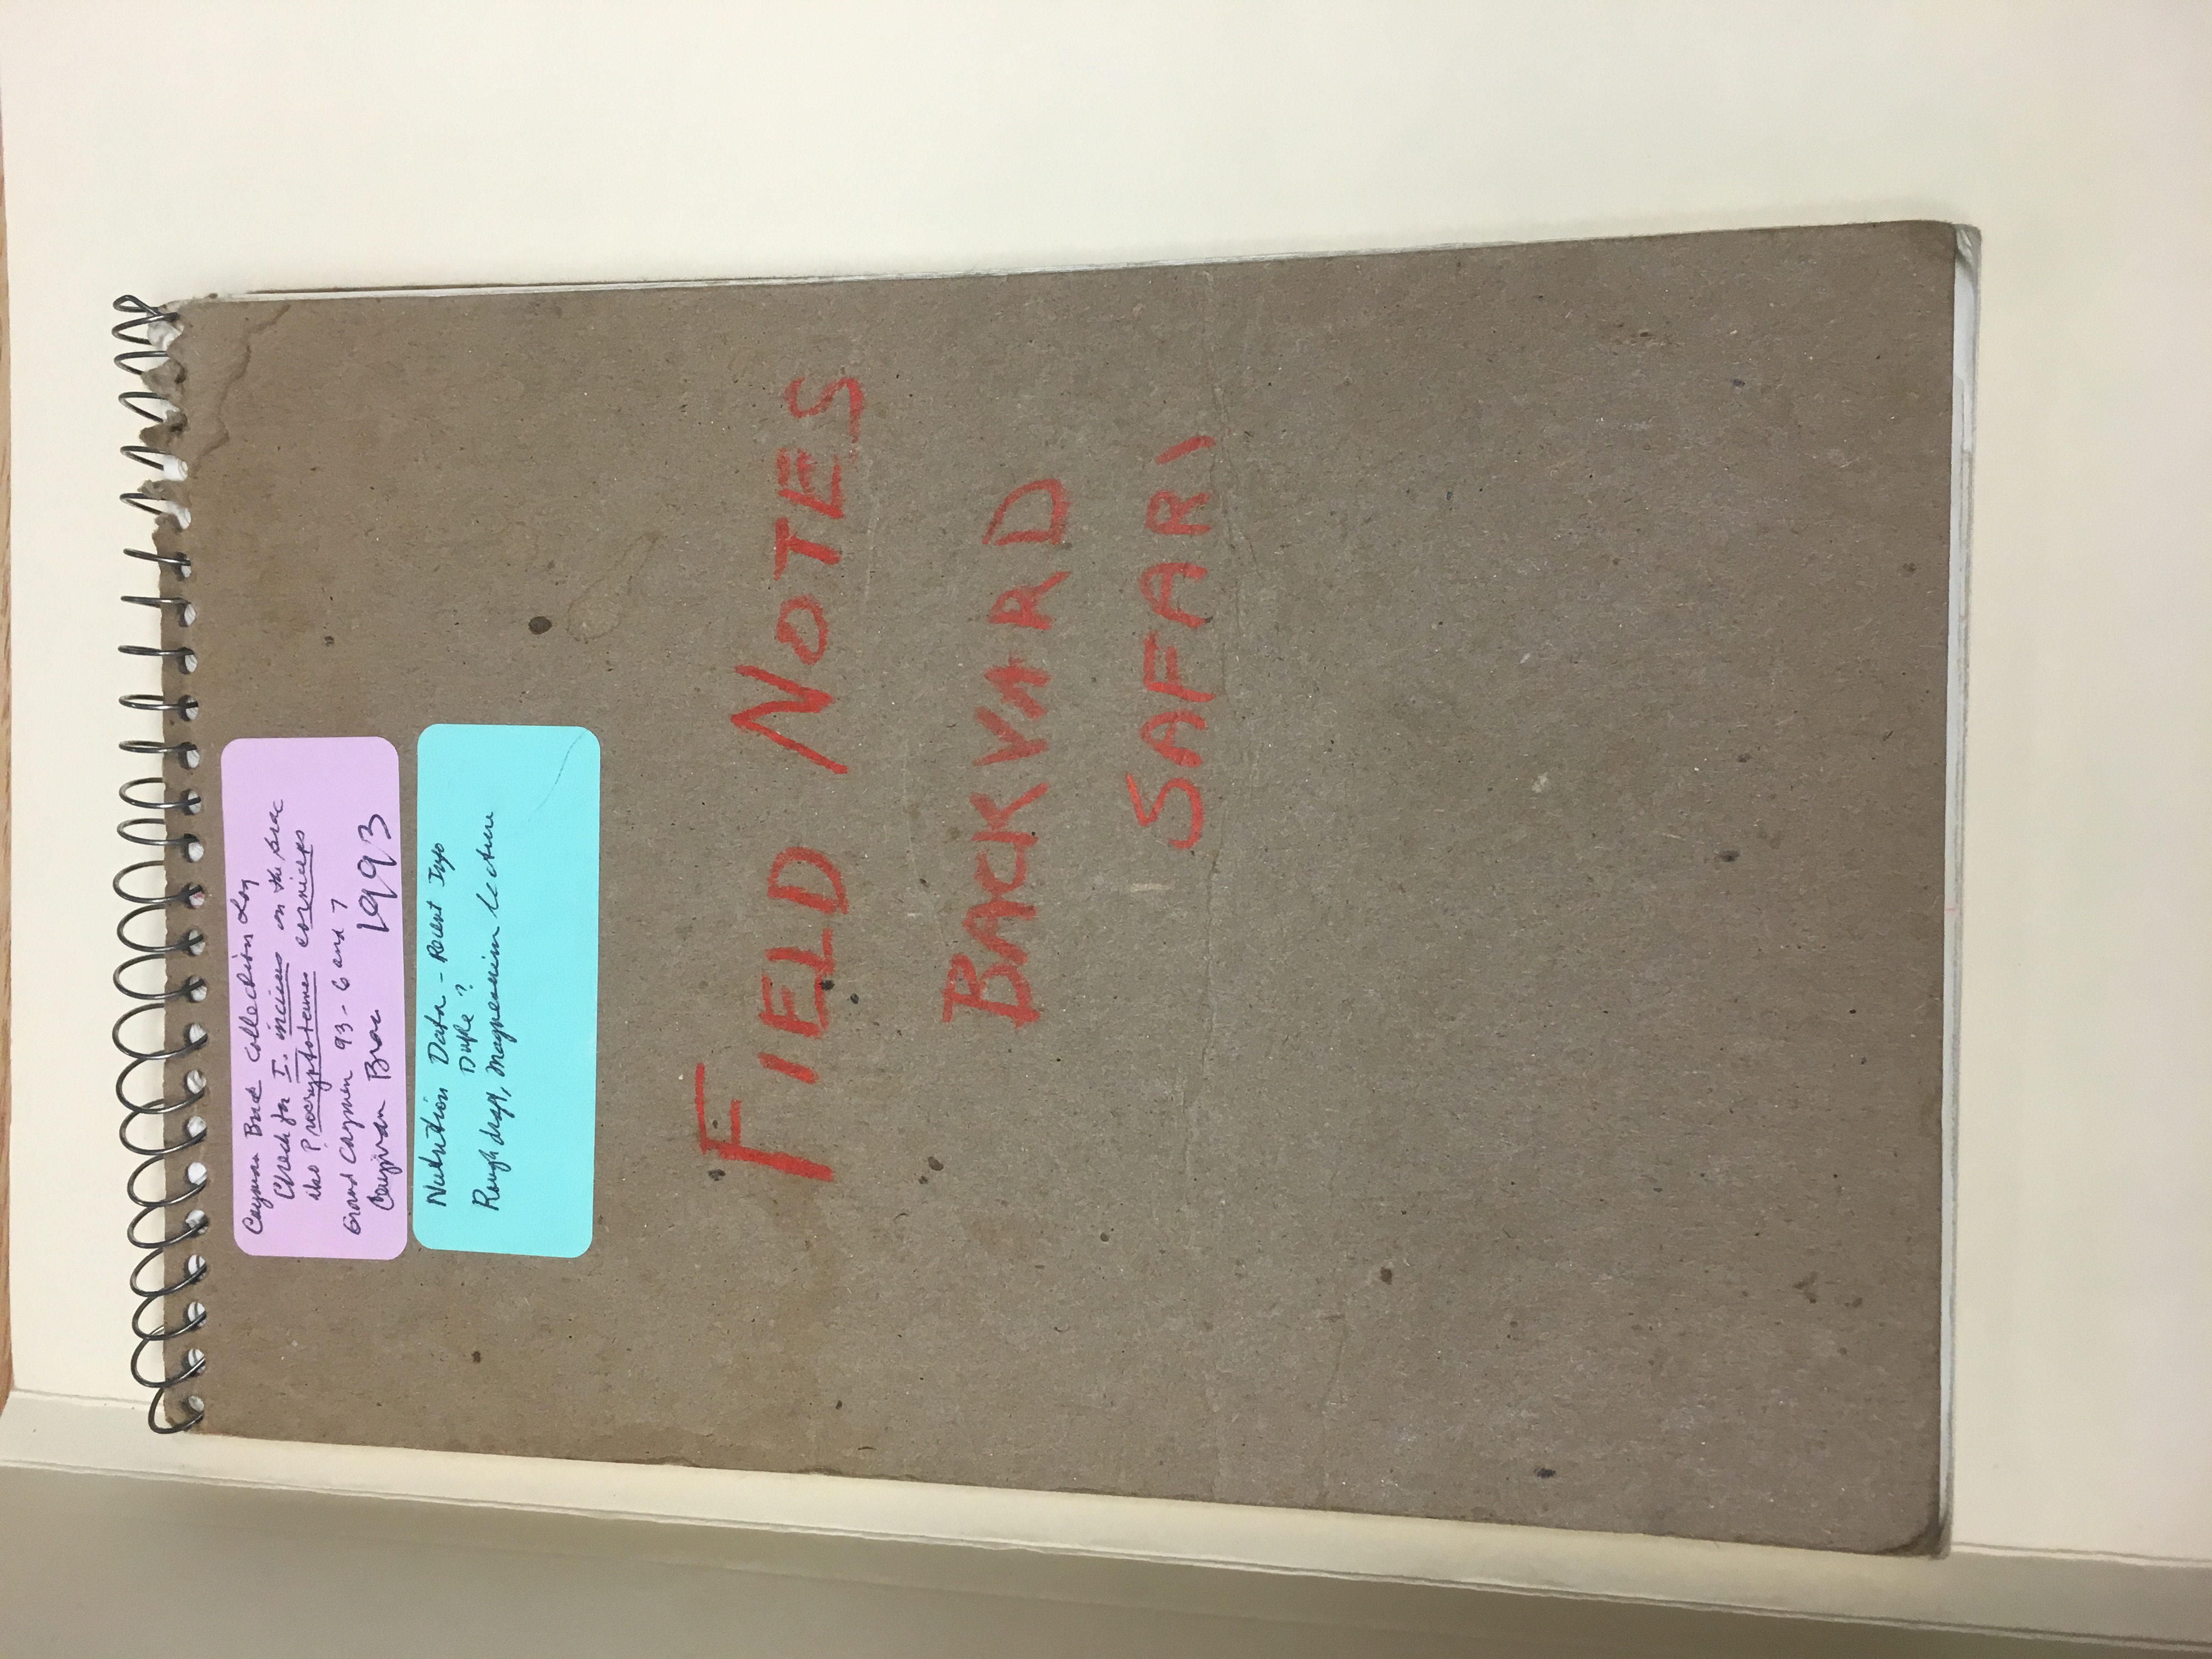 Cayman Brac Collection Log
Check for I. incisus on the brac
also Procryptotermes corniceps
Grand Cayman 93-6 and 7
Cayman Brac 1993
Nutrition Data - Recent Info
Duke ?
Rough draft, magnesium lecture
FIELD NOTES
BACKYARD
SAFARI